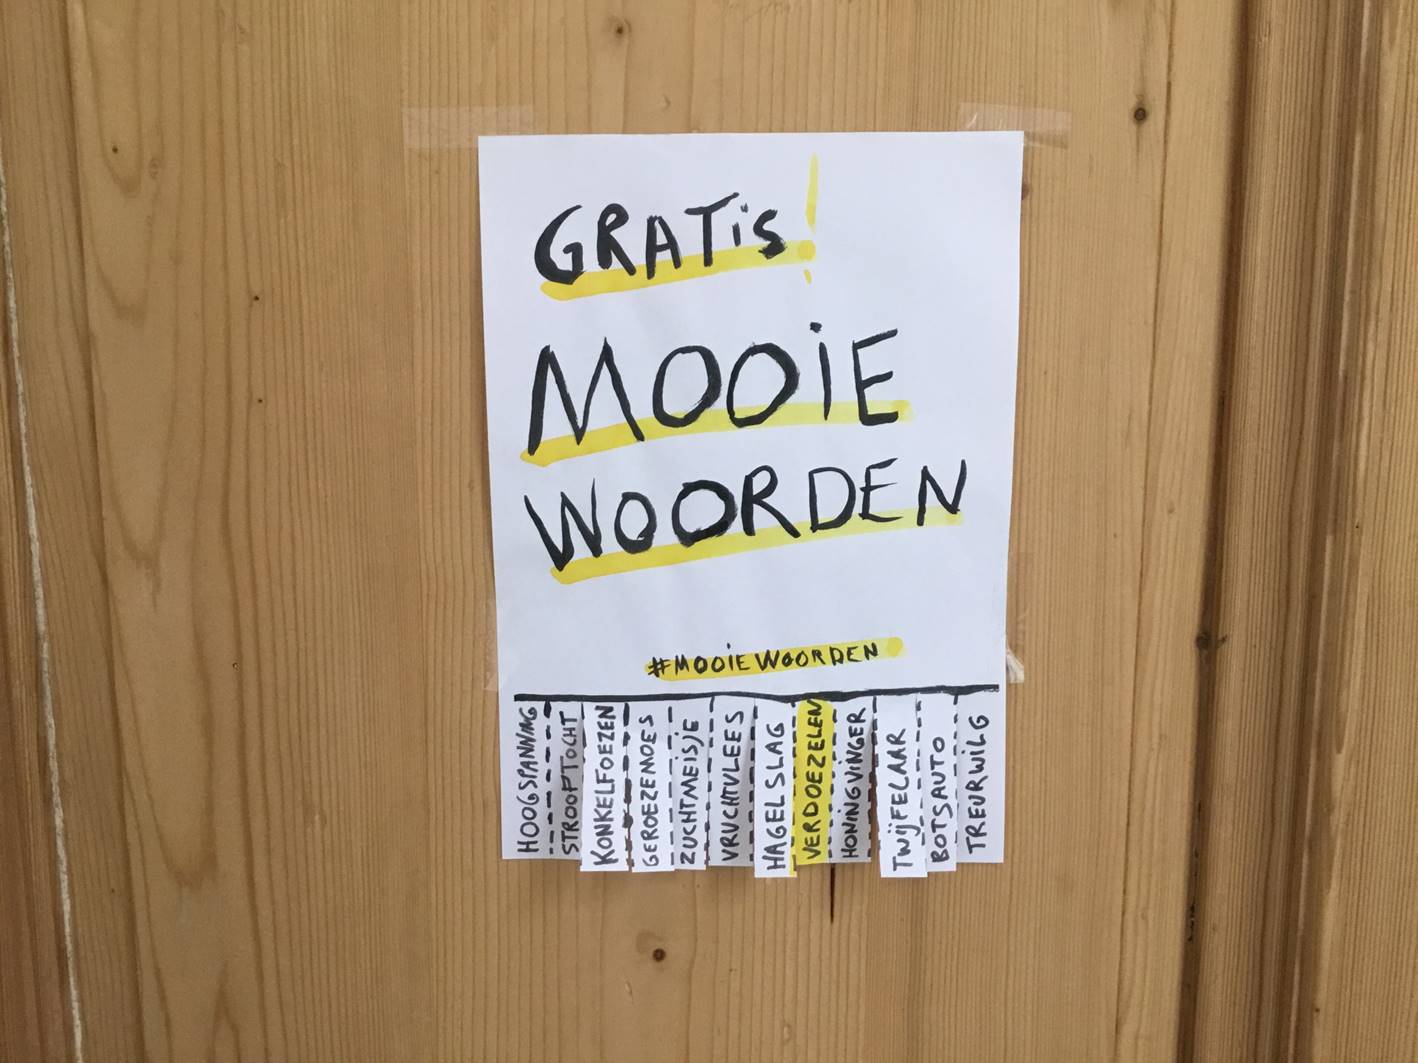 GRATiS!
MOOiE
WOORDEN
#MOOiEWOORDEN
HOOGSPANNING
STROOPTOCHT
KONKELFOEZEN
GEROEZEMOES
ZUCHTMEISJE
VRUCHTVLEES
HAGELSLAG
VERDOEZELEN
HONINGVINGER
TWIJFELAAR
BOTSAUTO
TREURWILG